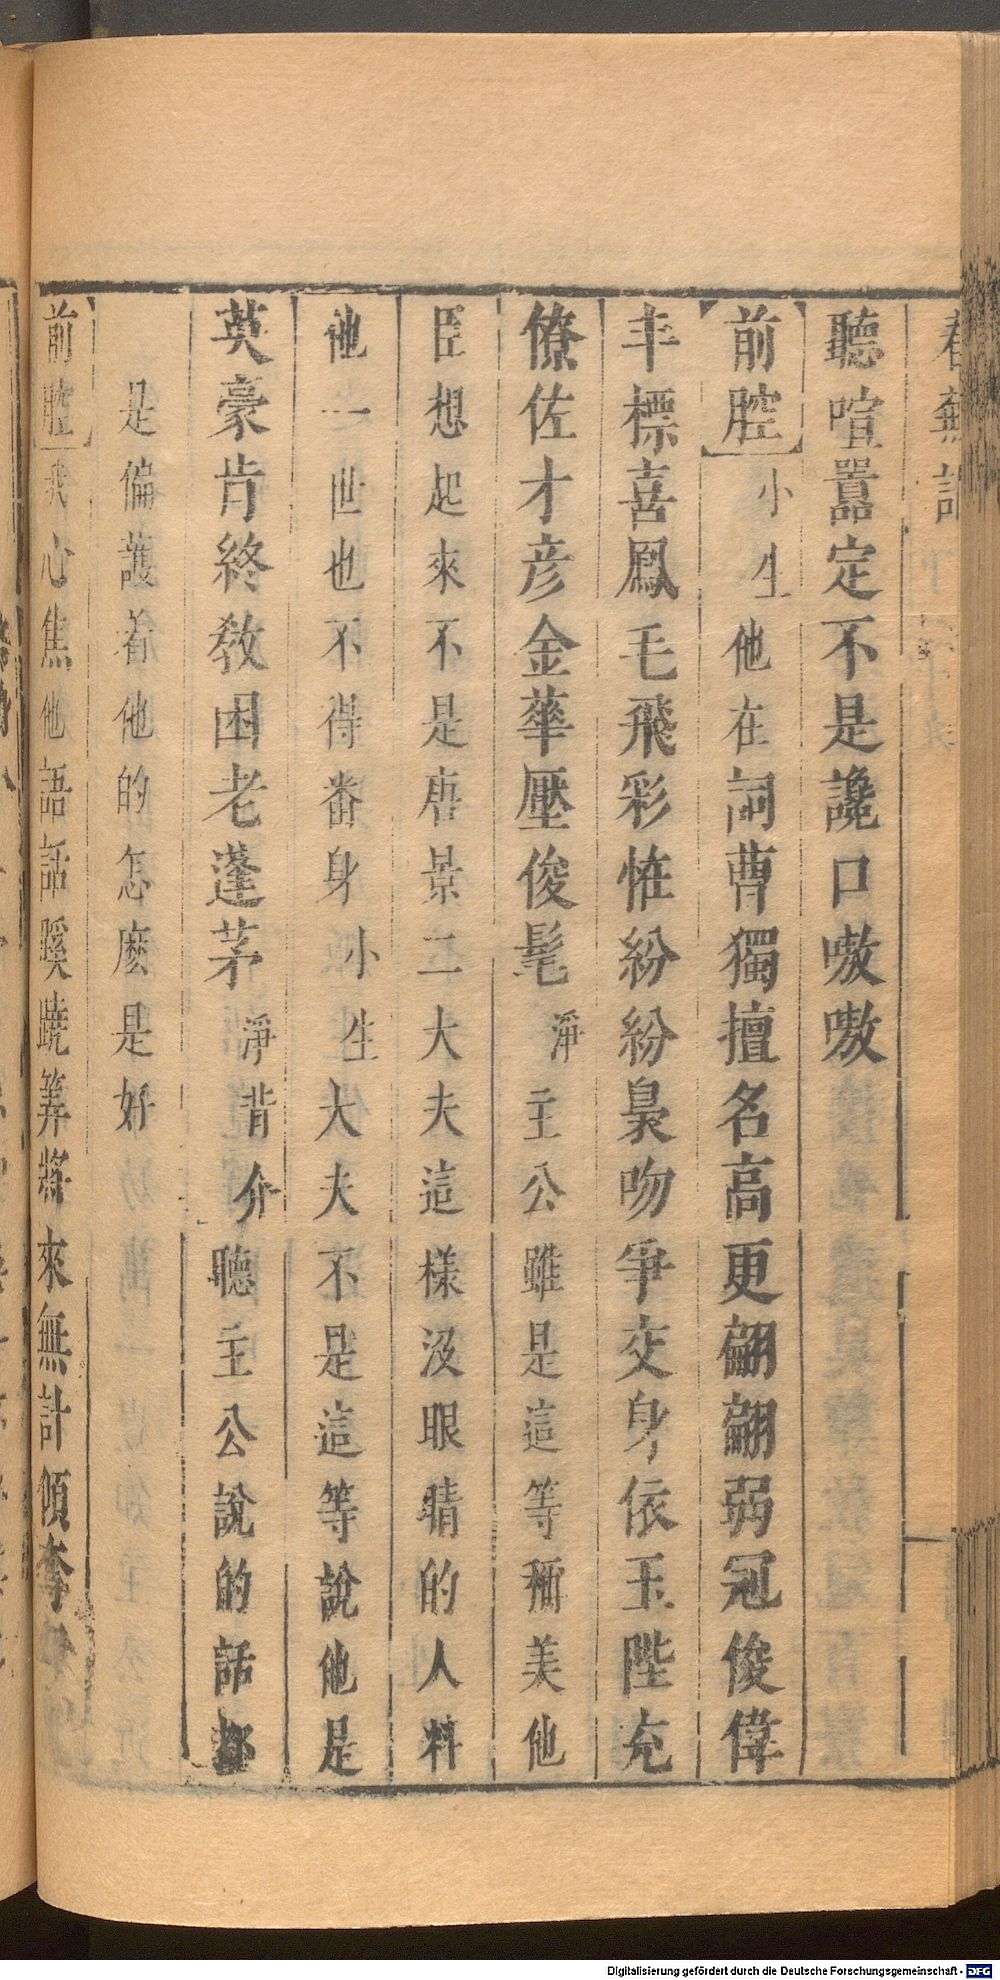 聽喧囂定不是讒口嗷嗷
前腔小生他在詞曹獨擅名高更翩翩弱冠俊偉
丰標喜鳳毛飛彩恠紛紛梟吻爭交身依玉陛充
僚佐才彦金華壓俊髦淨主公雖是這等稱美他
臣想起來不是唐景二大夫這樣沒眼睛的人料
他一世也不得番身小生大夫不是這等說他是
英豪肯終教困老蓬茅淨背介聽主公說的話都
是偏護着他的怎麽是好
前腔我心焦他語話蹊蹺筭將來無計傾
Digitalisierung gefördert durch die Deutsche Forschungsgemeinschaft - DFG